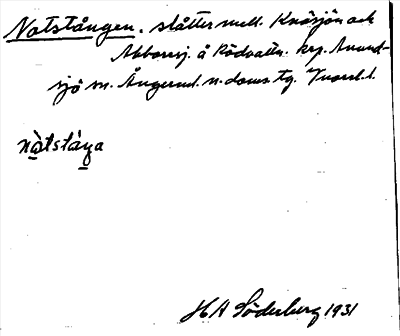 Notstången. slåtter mell. Knäsjön och
Abborrsj. å Rödvattn. krp. Anund-
sjö sn. Ångerml. n. doms. tg. Vnorrl. l.
nòtstáŋa
H A Söderberg 1931